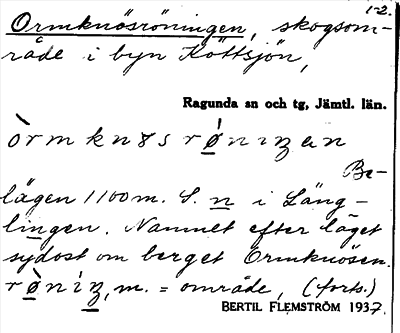 1-2.
Ormknösröningen, skogsom-
råde i byn Köttsjön,
Ragunda sn och tg, Jämtl. län.
òrmknøsrǿnıŋen
Be-
lägen 1100 m. S. n i Läng-
lingen. Namnet efter läget
sydost om berget Ormknösen.
rø̀nıŋ, m. = område, (forts.)
BERTIL FLEMSTRÖM 1937.